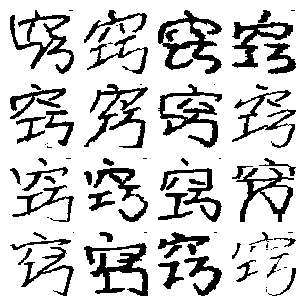 窍窍窍窍
窍窍窍窍
窍窍窍窍
窍窍窍窍